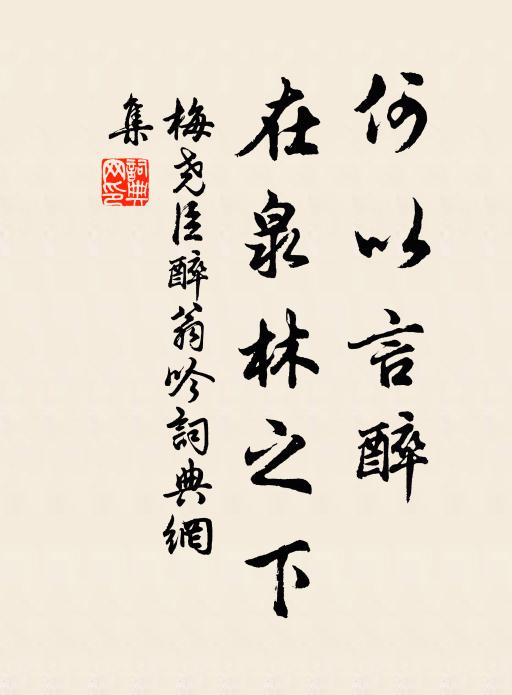 何以言醉
在泉林之下
梅尧臣醉翁吟詞典網
集
詞典
网印